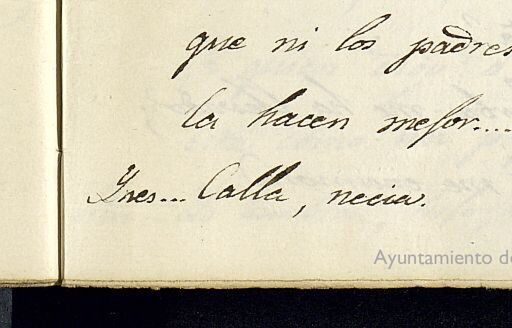 que ni los padres
la hacen mejor....
Ines... Calla, necia.
Ayuntamiento de